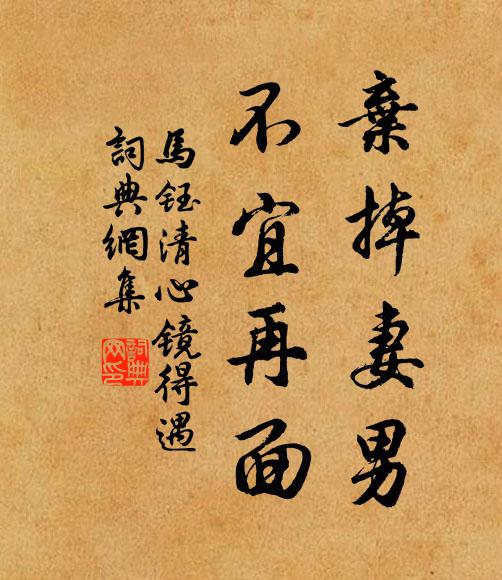 棄掉妻男
不宜再面
馬鈺清心镜得遇
詞典網集
詞典
网印